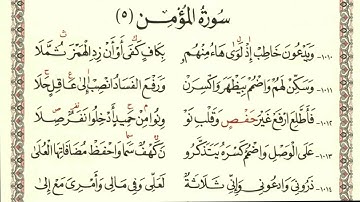 سُورَةُ الْمُؤْمِنِ (٥)
١٠١٠- وَيَدْعُونَ خَاطِبْ إِذْ لَوَى هَاءُ مِنْهُمُ بِكَافٍ كَفَى أَوْ أَنْ زِدِ الْهَمْزَ ثُمَّلَا
١٠١١- وَسَكِّنْ لَهُمْ وَاضْمُمْ بِيَظْهَرَ وَاكْسِرَنْ وَرَفْعَ الْفَسَادَ انْصِبْ إِلَى عَاقِلٍ حَلَا
١٠١٢- فَأَطَّلِعَ ارْفَعْ غَيْرَ حَفْصٍ وَقَلْبِ نَوْ وِنُوا مِنْ حَمِيدٍ أَدْخِلُوا نَفَرٌ صِلَا
١٠١٣- عَلَى الْوَصْلِ وَاضْمُمْ كَسْرَهُ يَتَذَكَّرُو نَ كَهْفٌ سَمَا وَاحْفَظْ مُضَافَاتِهَا الْعُلَى
١٠١٤- ذَرُونِي وَادْعُونِي وَإِنِّي ثَلَاثَةٌ لَعَلِّي وَفِي مَالِي وَأَمْرِيَ مَعْ إِلَى